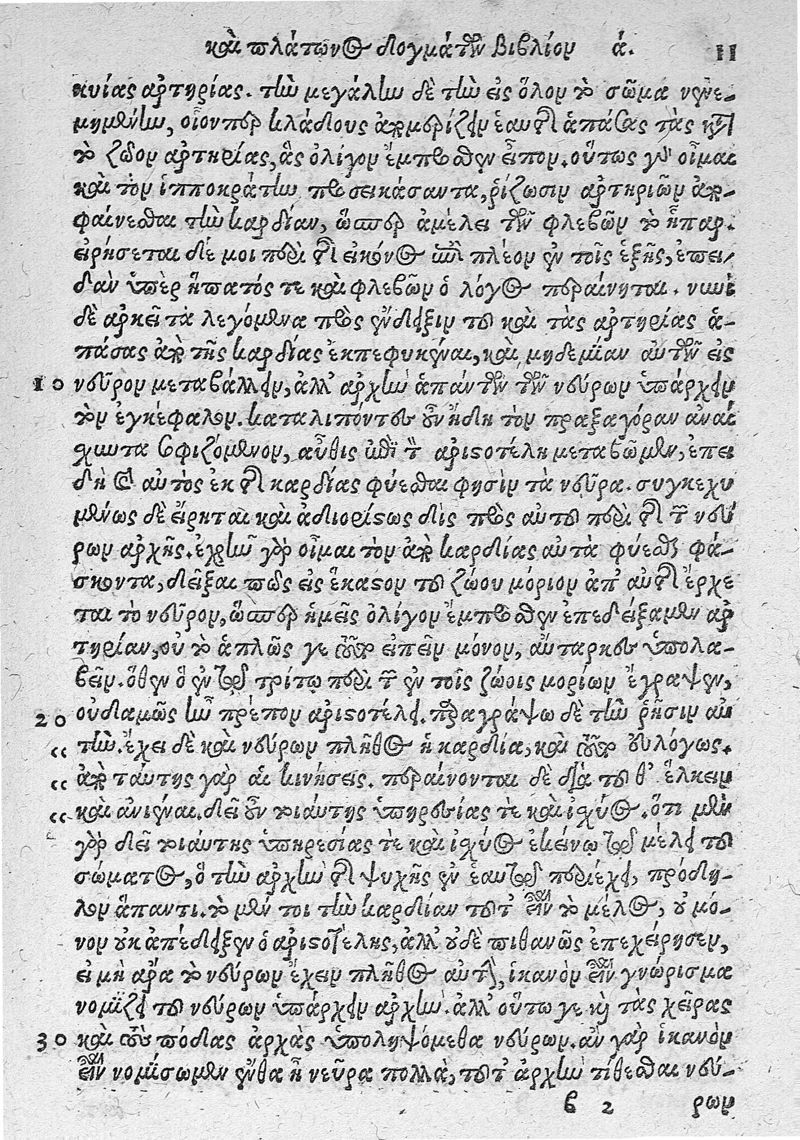 καὶ πλάτωνος δογμάτων βιβλίον ά. 11
κυίας ἀρτηρίας. τὴν μεγάλην δὲ τὴν εἰς ὅλον τὸ σῶμα νενε-
μημένην, οἷον περ κλάδους ἀπομερίζειν ἑαυτῆς ἁπάσας τὰς κατὰ
τὸ ζῶον ἀρτηρίας, ἃς ὀλίγον ἔμπροσθεν εἶπον. οὕτως γὰρ οἶμαι
καὶ τὸν ἱπποκράτην προσεικάσαντα, ῥίζωσιν ἀρτηριῶν ἀπο-
φαίνεσθαι τὴν καρδίαν, ὥσπερ ἀμέλει τῶν φλεβῶν τὸ ἧπαρ.
εἰρήσεται δέ μοι περὶ τῆς εἰκόνος ἐπὶ πλέον ἐν τοῖς ἑξῆς, ἐπει-
δὰν ὑπὲρ ἥπατός τε καὶ φλεβῶν ὁ λόγος περαίνηται. νυνὶ
δὲ ἀρκεῖ τὰ λεγόμενα πρὸς ἔνδειξιν τοῦ καὶ τὰς ἀρτηρίας ἁ-
πάσας ἀπὸ τῆς καρδίας ἐκπεφυκέναι, καὶ μηδεμίαν αὐτῶν εἰς
10 νεῦρον μεταβάλλειν, ἀλλ' ἀρχὴν ἁπάντων τῶν νεύρων ὑπάρχειν
τὸν ἐγκέφαλον. καταλιπόντες οὖν ἤδη τὸν πραξαγόραν ἀναί
χυντα σοφιζόμενον, αὖθις ἐπὶ τὸν ἀριστοτέλη μεταβῶμεν, ἐπει
δὴ καὶ αὐτὸς ἐκ τῆς καρδίας φύεσθαι φησὶν τὰ νεῦρα. συγκεχυ
μένως δὲ εἴρηται καὶ ἀδιορίστως δὶς πρὸς αὐτοῦ περὶ τῆς τῶν νεύ
ρων ἀρχῆς. ἐχρῆν γὰρ οἶμαι τὸν ἀπὸ καρδίας αὐτὰ φύεσθαι φά-
σκοντα, δεῖξαι πῶς εἰς ἕκαστον τοῦ ζώου μόριον ἀπ' αὐτῆς ἔρχε
ται τὸ νεῦρον, ὥσπερ ἡμεῖς ὀλίγον ἔμπροσθεν ἐπεδείξαμεν ἀρ
τηρίαν, οὐ τὸ ἁπλῶς γε οὕτως εἰπεῖν μόνον, αὔταρκες ὑπολα-
βεῖν. ὅθεν ὃ ἐν τῷ τρίτῳ περὶ τῶν ἐν τοῖς ζώοις μορίων ἔγραψεν,
20 οὐδαμῶς ἦν πρέπον ἀριστοτέλει. παραγράψω δὲ τὴν ῥῆσιν αὐ
“ τήν. ἔχει δὲ καὶ νεύρων πλῆθος ἡ καρδία, καὶ τοῦτο εὐλόγως.
“ ἀπὸ ταύτης γὰρ αἱ κινήσεις. περαίνονται δὲ διὰ τοῦ θ' ἕλκειν
“ καὶ ἀνιέναι. δεῖ οὖν τοιαύτης ὑπηρεσίας τὲ καὶ ἰσχύος. ὅτι μὲν
γὰρ δεῖ τοιαύτης ὑπηρεσίας τὲ καὶ ἰσχύος ἐκείνῳ τῷ μέλει τοῦ
σώματος, ὃ τὴν ἀρχὴν τῆς ψυχῆς ἐν ἑαυτῷ περιέχει, πρόδη-
λον ἅπαντι. τὸ μέν τοι τὴν καρδίαν τοῦτ' εἶναι τὸ μέλος, οὐ μό-
νον οὐκ ἀπέδειξεν ὁ ἀριστοτέλης, ἀλλ' οὐδὲ πιθανῶς ἐπεχείρησεν,
εἰ μὴ ἄρα τὸ νεύρων ἔχειν πλῆθος αὐτὴν, ἱκανὸν εἶναι γνώρισμα
νομίζει τοῦ νεύρων ὑπάρχειν ἀρχήν. ἀλλ' οὕτω γε καὶ τὰς χεῖρας
30 καὶ τοὺς πόδας ἀρχὰς ὑποληψόμεθα νεύρων. ἂν γὰρ ἱκανὸν
εἶναι νομίσωμεν ἔνθα ἢ νεῦρα πολλὰ, τοῦτ' ἀρχὴν τίθεσθαι νεύ-
b 2 ρων